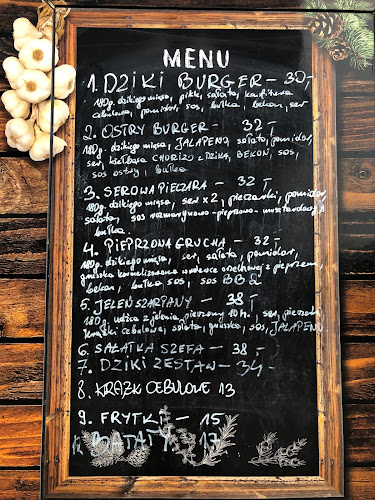 MENU
1. DZIKI BURGER - 30,-
180g. dzikiego mięsa, pikle, sałata, konfitura
cebulowa, pomidor, sos, bułka, bekon, ser
2. OSTRY BURGER - 32,-
180g. dzikiego mięsa, JALAPENO, sałata, pomidor,
ser, kiełbasa CHORIZO z DZIKA, BEKON, SOS,
sos ostry, bułka
3. SEROWA PIECZARA - 32,-
180g. dzikiego mięsa, ser x2, pieczarki, pomidor,
sałata, sos rozmarynowo-pieprzowo-musztardowy,
bułka
4. PIEPRZONA GRUCHA - 32,-
180g. dzikiego mięsa, ser, sałata, pomidor,
gruszka karmelizowana w pieprzem,
bekon, bułka, sos, sos BBQ
5. JELEŃ SZARPANY - 38,-
180g. udźca z jelenia, pieczony 10h., ser, pieczarki
krążki cebulowe, sałata, gruszka, sos, JALAPENO
6. SAŁATKA SZEFA - 38,-
7. DZIKI ZESTAW - 34,-
8. KRĄŻKI CEBULOWE 13
9. FRYTKI - 15
BATATY - 17